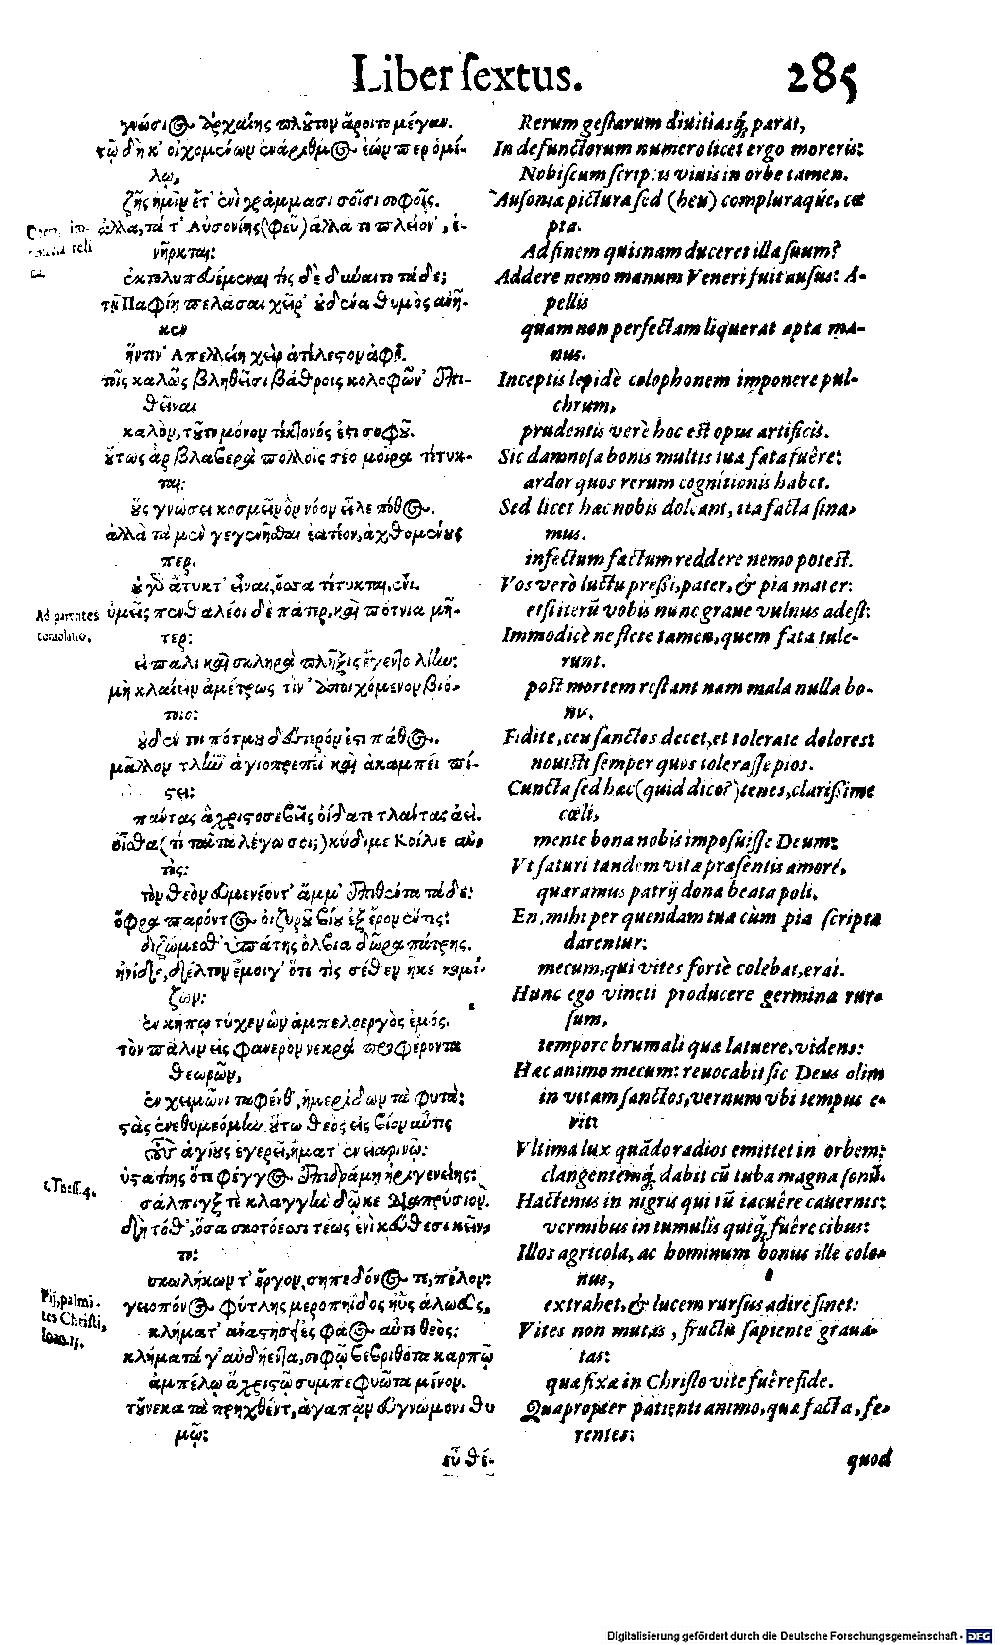 Liber sextus. 285
γνώσιος ἀρχαίης πλοῦτον ἄροιτο μέγαν.
τῷ δὴ κ' οἰχομένων ἐνάριθμος ἐὼν περ ὁμί-
λῳ,
ζῇς ἡμῖν ἔτ' ἐνὶ γράμμασι σοῖσι σοφοῖς.
ἀλλα, τά τ' Αὐσονίης (φεῦ) ἄλλα τι πλείον',
νῆρκται:
ἐκτολυπευέμεναι τίς δὲ δύναιτο τάδε;
τῇ Παφίῃ πελάσαι χεῖρ' οὐδένα θυμὸς ἀνῆ-
κεν
ἥντιν' Απελλείη χεὶρ ἀτέλεστον ἀφῆ.
τοῖς καλῶς βληθεῖσι βάθροις κολοφῶν' ἐπι-
θεῖναι
καλὸν, τοῦτο μόνον τέκτονός ἐστι σοφοῦ.
οὕτως ἂρ βλαβερὰ πολλοῖς σέο μοῖρα τέτυκ-
ται:
οὓς γνώσει κοσμεῖν ὃν νόον εἷλε πόθος.
ἀλλὰ τὰ μὲν γεγενῆσθαι ἐατέον, ἀχθομένους
περ.
οὐ γὰρ ἄτυκτ' εἶναι, ὅσσα τέτυκται, ἔνι.
ὑμεῖς πενθαλέοι δὲ πάτερ, καὶ πότνια μῆ-
τερ:
εἰ πάλι καὶ σκληρὰ πλῆξις ἔγεντο λίην:
μὴ κλαίειν ἀμέτρως τὸν ἀποιχόμενον βιό-
τοιο:
οὐδέν τοι πότμου δεύτερόν ἐστι πάθος.
μᾶλλον τλῆτ' ἁγιοπρεπεῖ καὶ ἀκαμπέϊ πί-
στει:
πάντας ἀχριστοσεβεῖς οἴδατε τλάντας ἀεί.
οἶσθα (τί ταῦτα λέγω σοι;) κύδιμε Κοίλιε αὐ-
τὸς:
τὸν θεὸν εὐμενέοντ' ἄμμ' ἐπιθέντα τάδε:
ὄφρα παρόντος οἰζυροῦ βίου ἐξ ἔρον ἕντες:
διζώμεσθ' ὑπάτης ὄλβια δῶρα πάτρης.
ἠνίδε, δέλτον ἔμοιγ' ὅτε τὶς σέθεν ἧκε κομί-
ζων:
ἐν κήπῳ τύχεν ὢν ἀμπελοεργὸς ἐμός.
τὸν πάλιν εἰς φανερὸν νεκρὰ προφέροντα
θεωρῶν,
ἐν χειμῶνι ταφένθ', ἡμερίδων τὰ φυτὰ:
τὰς ἐνεθυμεόμην. οὕτω θεὸς εἰς βίον αὖτις
τοὺς ἁγίους ἐγερεῖ, ἤματ' ἐν εἰαρινῷ:
ὑστατίης ὅτε φέγγος ἐπιδράμῃ ἠριγενείης:
σάλπιγξ τε κλαγγὴν δῶκε διαπρύσιον.
δὴ τόθ', ὅσα σκοτόεσσι τέως ἐνὶ κεύθεσι κεῖν-
το:
σκωλήκων τ' ἔργον, σηπεδόνος τε, πέλον:
γειοπόνος φύτλης μεροπηΐδος ἠῢς ἀλωεύς,
κλήματ' ἀναστήσει ἐς φάος αὖτε θεὸς:
κλήματά γ' αὐδήεντα, σοφῷ βεβριθότα καρπῷ
ἀμπέλῳ ἃ χριστῷ συμπεφυῶτα μένον.
τοὔνεκα τὰ πρηχθέντ', ἀγαπᾶν εὐγνώμονι θυ
μῷ:
εὖ θέ-
Opera im-
reli
Ad parentes
consolatio.
1. Thess. 4.
Pij, palmi-
tes Christi,
Ioan. 15.
Rerum gestarum diuitiasq́; parat,
In defunctorum numero licet ergo moreris:
Nobiscum scriptis viuis in orbe tamen.
Ausonia pictura sed (heu) compluraqué, cœ
pta.
Ad finem quisnam duceret illa suum?
Addere nemo manum Veneri fuit ausus: A-
pellis
quam non perfectam liquerat apta ma-
nus.
Inceptis lepidè colophonem imponere pul-
chrum,
prudentis verè hoc est opus artificis.
Sic damnosa bonis multis tua fata fuêre:
ardor quos rerum cognitionis habet.
Sed licet hæc nobis doleant, ita facta sina-
mus.
infectum factum reddere nemo potest.
Vos verò luctu preßi, pater, & pia mater:
etsi iterũ vobis nunc graue vulnus adest:
Immodicè ne flete tamen, quem fata tule-
runt.
post mortem restant nam mala nulla bo-
no.
Fidite, ceu sanctos decet, et tolerate dolores:
nouistis semper quos tolerasse pios.
Cuncta sed hæc (quid dico?) tenes, clarißime
cæli,
mente bona nobis imposuisse Deum:
Vt saturi tandem vitæ præsentis amore,
quæramus patrij dona beata poli.
En, mihi per quendam tua cùm pia scripta
darentur:
mecum, qui vites fortè colebat, erat.
Hunc ego vineti producere germina rur-
sum,
tempore brumali quæ latuere, videns:
Hæc animo mecum: reuocabit sic Deus olim
in vitam sanctos, vernum vbi tempus e-
rit:
Vltima lux quãdo radios emittet in orbem:
clangentemq́; dabit cũ tuba magna sonũ.
Hactenus in nigris qui tũ iacuêre cauernis:
vermibus in tumulis quiq́; fuêre cibus:
Illos agricola, ac hominum bonus ille colo-
nus,
extrahet, & lucem rursus adire sinet:
Vites non mutas, fructu sapiente graua-
tas:
quæ fixa in Christo vite fuêre fide.
Quapropter patienti animo, quæ facta, fe-
rentes:
quod
Digitalisierung gefördert durch die Deutsche Forschungsgemeinschaft - DFG